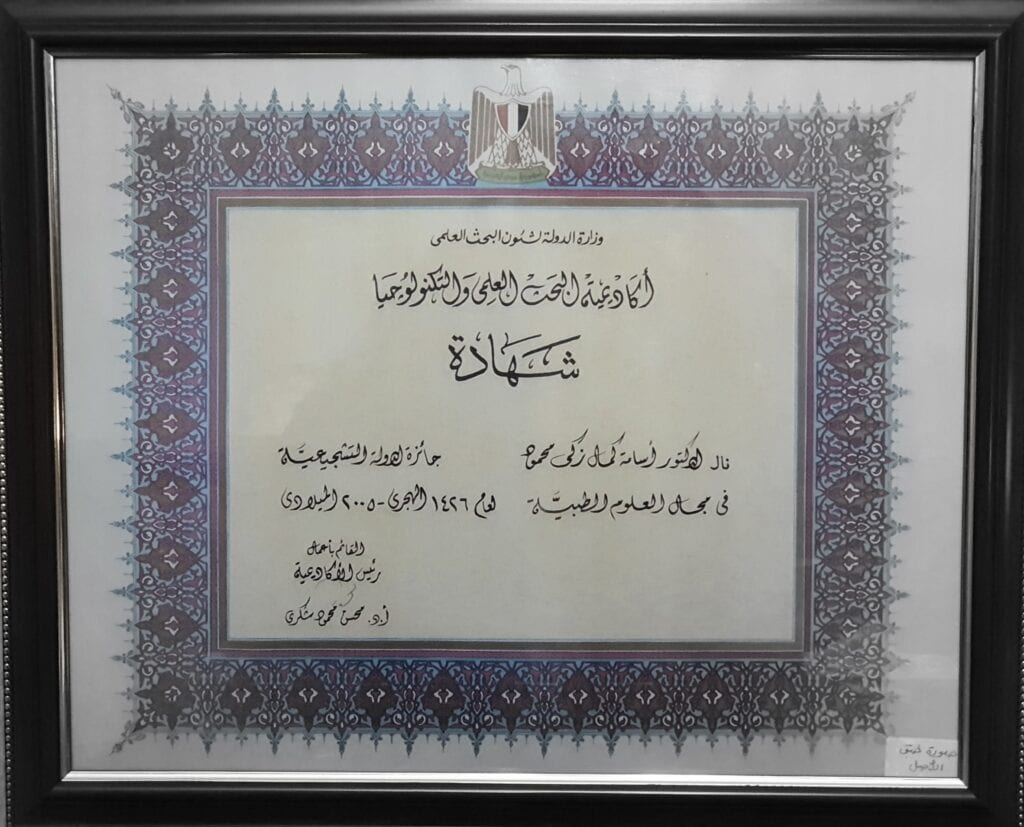 جمهورية مصر العربية
وزارة الدولة لشئون البحث العلمى
أكاديمية البحث العلمى والتكنولوجيا
شهادة
نال الدكتور أسامة كمال زكى محمود جائزة الدولة التشجيعية
فى مجال العلوم الطبية لعام ١٤٢٦ الهجرى - ٢٠٠٥ الميلادى
القائم بأعمال
رئيس الأكاديمية
أ.د. محسن محمود شكرى
صورة طبق
الأصل